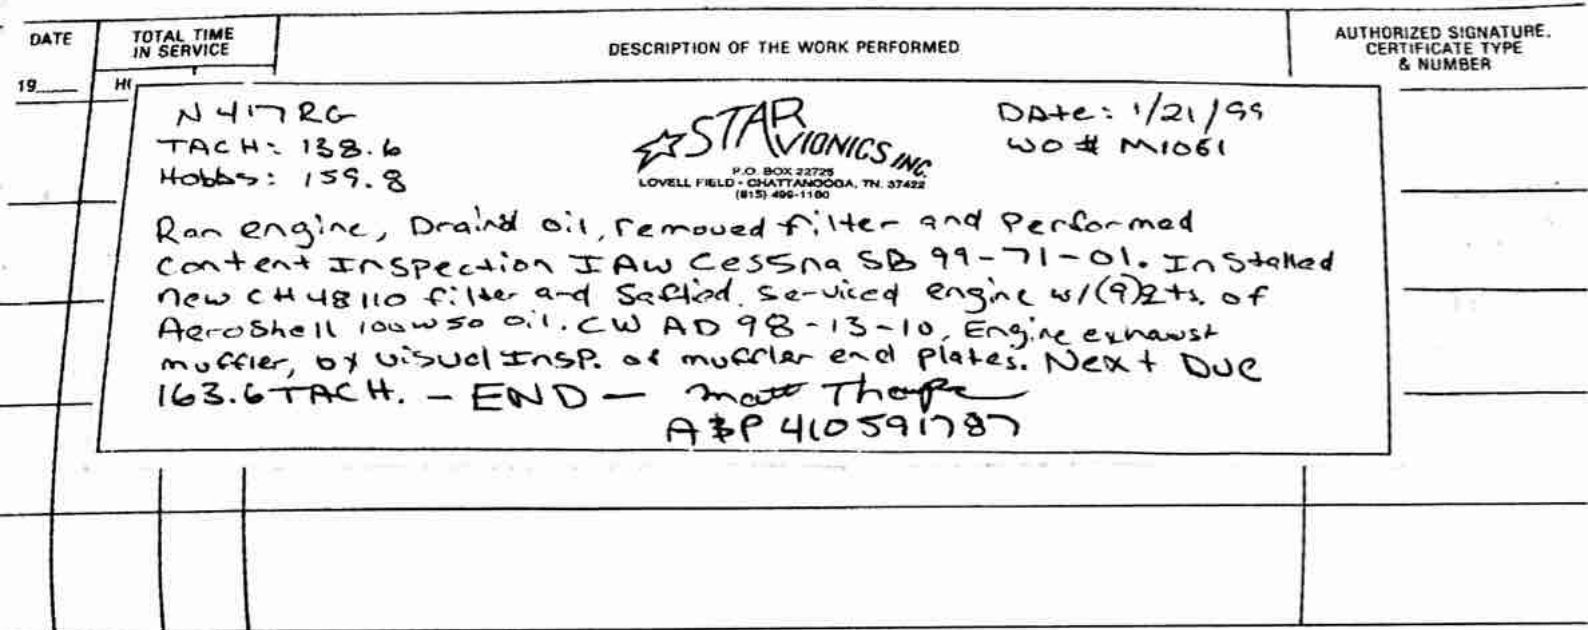 DATE
TOTAL TIME
IN SERVICE
DESCRIPTION OF THE WORK PERFORMED
AUTHORIZED SIGNATURE,
CERTIFICATE TYPE
& NUMBER
19
N417RG
TACH: 138.6
Hobbs: 159.8
STAR AVIONICS INC.
P.O. BOX 22725
LOVELL FIELD - CHATTANOOGA, TN. 37422
(615) 499-1100
DAte: 1/21/99
WO # M1061
Ran engine, Draind oil, removed filter and Performed
Content Inspection IAW Cessna SB 99-71-01. Installed
new CH48110 filter and Saftied. Serviced engine w/(9)Qts. of
AeroShell 100w50 oil. CW AD 98-13-10, Engine exhaust
muffler, by visual Insp. of muffler end plates. Next Due
163.6 TACH. - END - Matt Thorpe
A&P 410591787